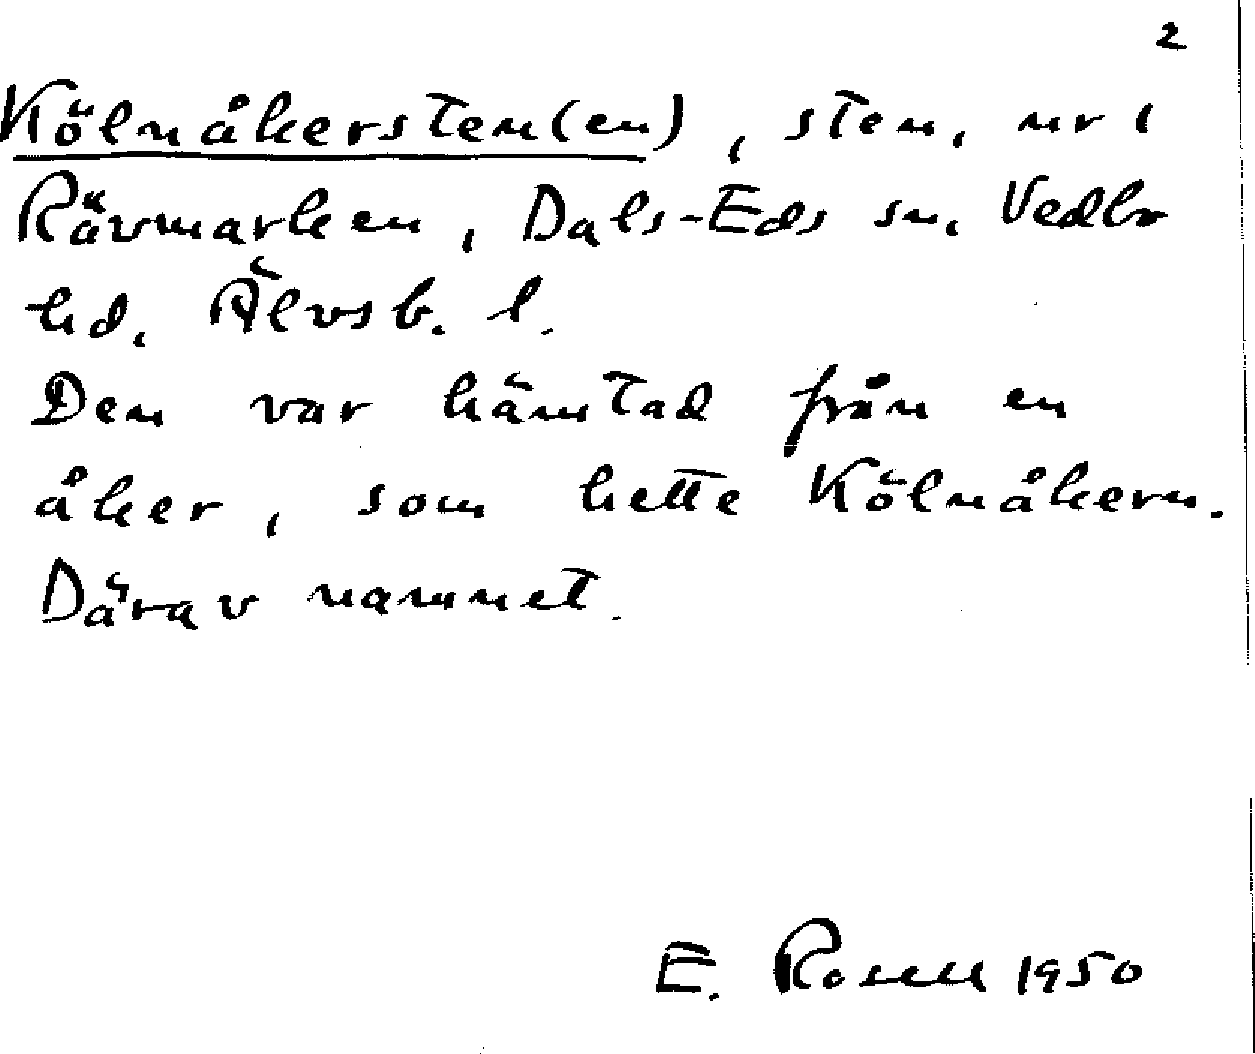 2
Kölnåkersten(en), sten, nr 1
Rävmarken, Dals-Eds sn, Vedbo
hd, Älvsb. l.
Den var hämtad från en
åker, som hette Kölnåkern.
Därav namnet.
E. Rosell 1950